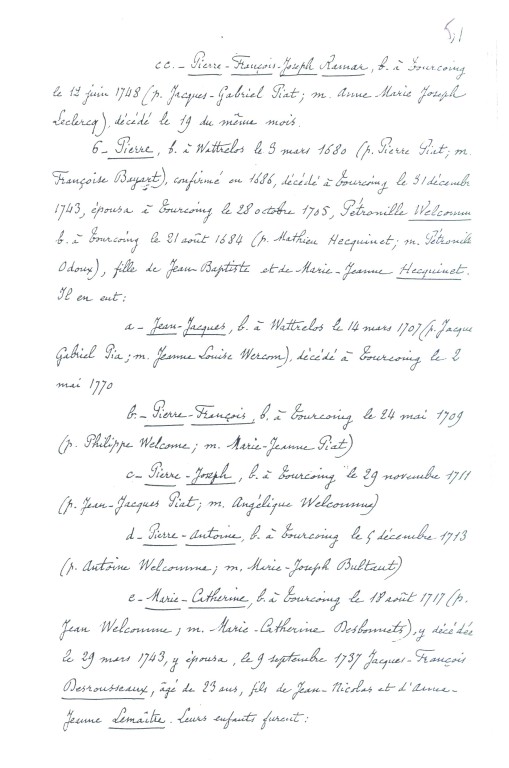 5,1
cc.- Pierre-François-Joseph Ramar, b. à Tourcoing
le 17 juin 1748 (p. Jacques-Gabriel Piat; m. Anne Marie Joseph
Leclercq), décédé le 19 du même mois.
6- Pierre, b. à Wattrelos le 3 mars 1680 (p. Pierre Piat; m.
Françoise Bayart), confirmé en 1686, décédé à Tourcoing le 31 décembre
1743, épousa à Tourcoing le 28 octobre 1705, Pétronille Welcomm
b. à Tourcoing le 21 août 1684 (p. Mathieu Hecquinet; m. Pétronille
Odoux), fille de Jean-Baptiste et de Marie-Jeanne Hecquinet.
Il en eut:
a- Jean-Jacques, b. à Wattrelos le 14 mars 1707 (p. Jacque
Gabriel Pia; m. Jeanne Louise Wercom), décédé à Tourcoing le 2
mai 1770
b.- Pierre-François, b. à Tourcoing le 24 mai 1709
(p. Philippe Welcome; m. Marie-Jeanne Piat)
c- Pierre-Joseph, b. à Tourcoing le 29 novembre 1711
(p. Jean-Jacques Piat; m. Angélique Welcomme)
d- Pierre-Antoine, b. à Tourcoing le 5 décembre 1713
(p. Antoine Welcomme; m. Marie-Joseph Bultaut)
e- Marie-Catherine, b. à Tourcoing le 18 août 1717 (p.
Jean Welcomme; m. Marie-Catherine Desbonnets), y décédée
le 29 mars 1743, y épousa, le 9 septembre 1737 Jacques-François
Desrousseaux, âgé de 23 ans, fils de Jean-Nicolas et d'Anne-
Jeanne Lemaître. Leurs enfants furent: